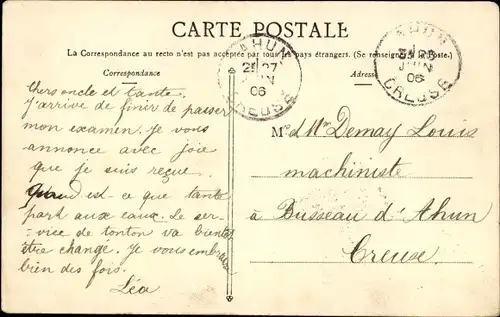 CARTE POSTALE
La Correspondance au recto n'est pas acceptée par tous les pays étrangers. (Se renseigner à la Poste.)
Correspondance
Adresse
AHUN
27
JUIN
06
CREUSE
AHUN
JUIN
06
CREUSE
Chers oncle et tante.
J'arrive de finir de passer
mon examen. Je vous
annonce avec joie
que je suis reçue.
Quand est-ce que tante
part aux eaux. Le ser-
vice de tonton va bientôt
être changé. Je vous embrasse
bien des fois.
Léa
M
Demay Louis
machiniste
à Busseau d'Ahun
Creuse.